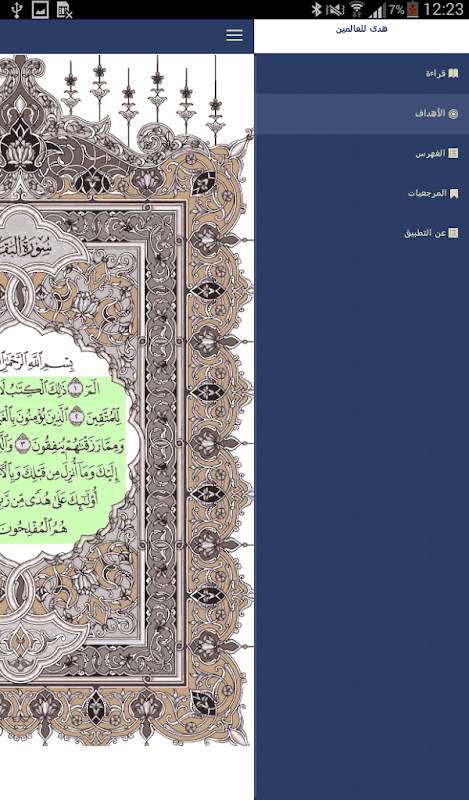 7% 12:23
هدى للعالمين
قراءة
الأهداف
الفهرس
المرجعيات
عن التطبيق
سُورَةُ البَقَ
بِسْمِ ٱللَّهِ ٱلرَّحْمَٰنِ
الٓمٓ ١ ذَٰلِكَ ٱلْكِتَٰبُ لَا
لِّلْمُتَّقِينَ ٢ ٱلَّذِينَ يُؤْمِنُونَ بِٱلْغَ
وَمِمَّا رَزَقْنَٰهُمْ يُنفِقُونَ ٣ وَٱلَّ
إِلَيْكَ وَمَآ أُنزِلَ مِن قَبْلِكَ وَبِٱلْأ
أُو۟لَٰٓئِكَ عَلَىٰ هُدًى مِّن رَّبِّ
هُمُ ٱلْمُفْلِحُونَ